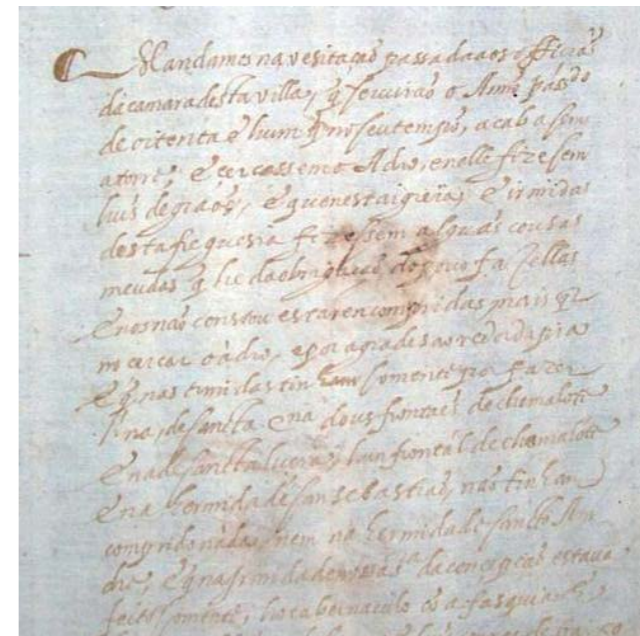 Mandamos na vesitação passada aos officiaes
da camara desta villa, q̃ serviraõ o Anno pásdo
de oitenta & hum q̃ no seu tempo, acabasem
a torre, & cercassem o Adro, e nelle fizesem
huns degraos, & que nesta igreia, & irmidas
desta freguesia fizessem alguãs cousas
meudas q̃ he da obrigaçaõ do povo fazellas
& nos naõ constou estarem compridas mais q̃
m cercar o adro, e por agrades ao redor da pia
& q̃ nas irmidas tinham somente por fazer
na de sancta dous frontaes de chamalote
& na de sancta Luzia, hum frontal de chamalote
& na hermida de san sebastiaõ, naõ tinham
comprido nada, nem na hermida de sancto An
dre, & q̃ na irmida de nossa sra da conceiçaõ estava
feito somente, ho tabernaculo